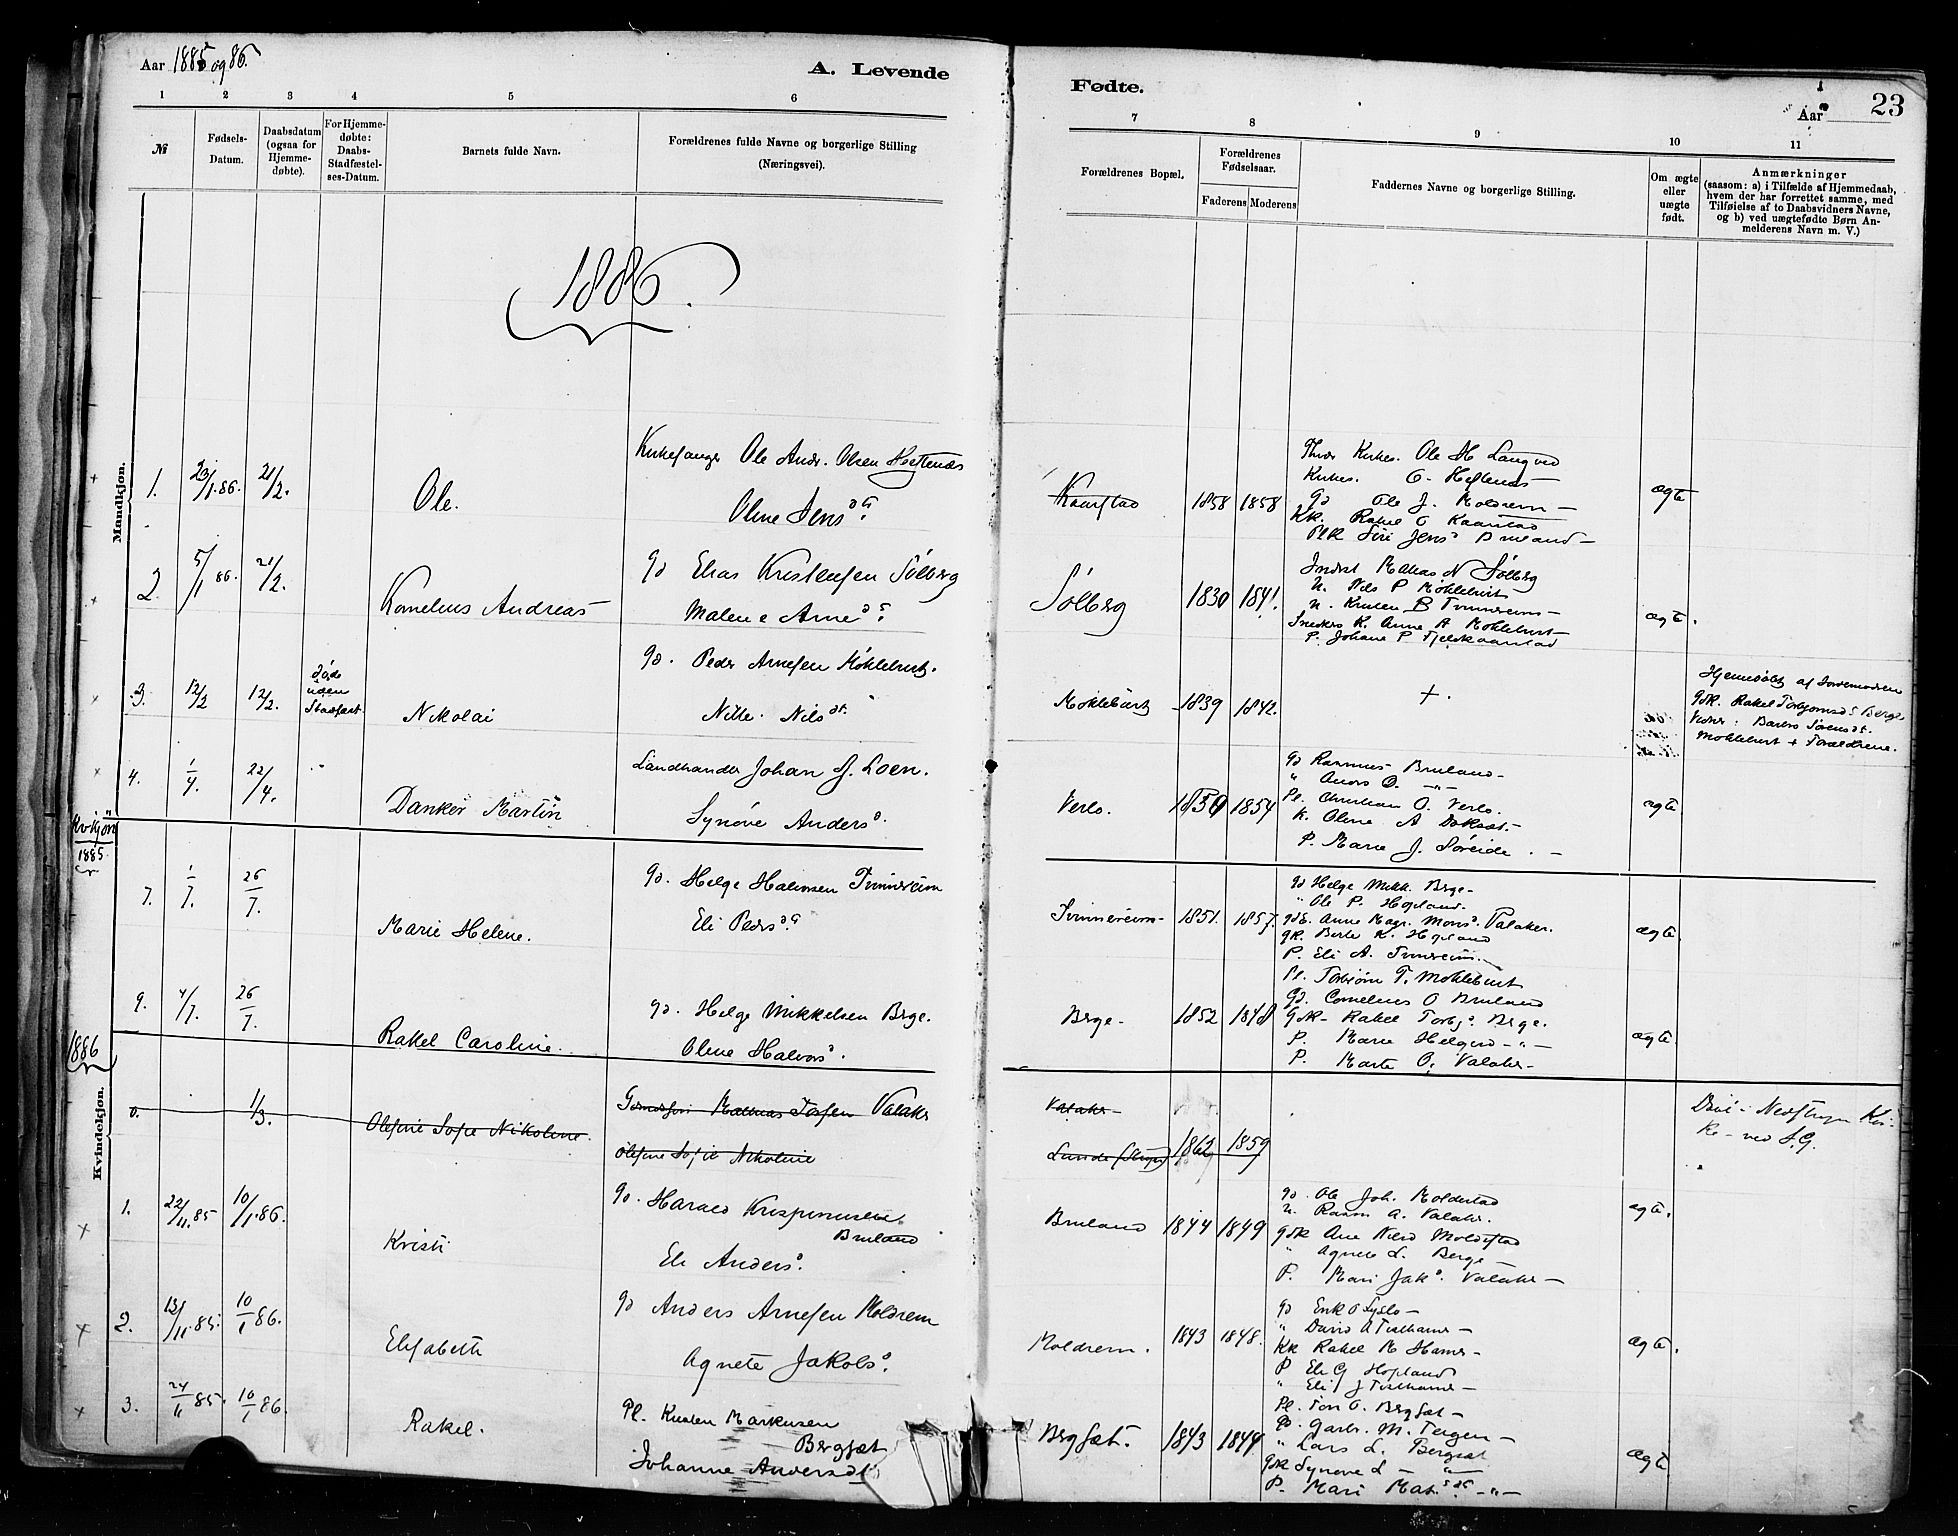 Aar 1885 og 86.
A. Levende
Fødte.
Aar
23
1 2 3 4 5 6
7 8 9 10 11
№
Fødsels-Datum.
Daabsdatum (ogsaa for Hjemme-døbte).
For Hjemme-døbte: Daabs-Stadfæstel-ses-Datum.
Barnets fulde Navn.
Forældrenes fulde Navne og borgerlige Stilling (Næringsvei).
Forældrenes Bopæl.
Forældrenes Fødselsaar.
Faderens Moderens
Faddernes Navne og borgerlige Stilling.
Om ægte eller uægte født.
Anmærkninger
(saasom: a) i Tilfælde af Hjemmedaab,
hvem der har forrettet samme, med
Tilføielse af to Daabsvidners Navne,
og b) ved uægtefødte Børn An-
melderens Navn m. V.)
1886.
Mandkjøn.
1. 23/1.86. 21/2. Ole.
Kirkesanger Ole Andr. Olsen Heftenæs
Oline Jensdt.
Kaarstad 1858 1858
Kirkes. Ole M Langved
Kirkes. O. Heftenæs
Gd Ole J. Moldrem
Kk. Rakel O Kaarstad
Plk Siri Jensd Bruland
ægte
2. 5/1 86. 21/2. Kornelius Andreas
Gd Elias Kristensen Sølberg
Malene Arnedt.
Sølberg 1830 1841.
Indst Mathias N Sølberg
u. Nils P Møklebust
u. Kristen B Tvinnereim
Snedkers K. Anne A Moklebust
P. Johane P Fjelskaarstad
ægte.
3. 12/2 12/2. død uden Stadfæst Nikolai
Gd. Peder Arnesen Møklebust.
Nille. Nilsdt.
Moklebust 1839 1842. +.
Hjemmedøbt af Jordemoderen
Gdk. Rakel Torbjornsd Berge
Vidner: Barbro Sørensdt.
Moklebust + Forældrene.
4. 1/4. 22/4. " Danker Martin
Landhandler Johan J. Loen.
Synøve Andersd.
Verlo. 1850 1854
Gd Rasmus Bruland
" Anders O. -"-
Pl. Christian O. Verlo.
K. Oline A
P. Marie J. Søreide
ægte
Kvkjøn
1885
7. 1/7. 26/7. Marie Helene.
Gd. Helge Halvorsen Tvinnereim
Eli Pedersdt.
Tvinnereim 1851. 1857.
Gd Helge Mikk. Berge
" Ole P. Hopland
Anne Magr. Monsd. Valaker.
Gk. Berte K. Hopland
P. Eli A. Tvinnereim.
ægte.
9. 4/7. 26/7. Rakel Caroline.
Gd. Helge Mikkelsen Berge.
Oline Halvorsd.
Berge 1852 1848
Pl. Torbjørn T. Moklebust
Gd. Cornelius O Bruland
Gdk Rakel Torbj. Berge.
P. Marie Helgesd -"-
P. Marte O. Valaker
ægte.
1886
Kvindekjøn.
0. 1/3. Olefine Sofie Nikoline.
Mathias Josefsen Valaker
Olefine Sofie Nikoline
Valaker
Lunde (Stryn) 1862 1859
Døbt i Nedstryn Kir-
ke
1. 22/11.85 10/1.86. Kristi
Gd. Harald Krispinusen
Bruland
Eli Andersd.
Bruland 1844 1849
Gd. Ole Joh. Moldestad
u. Rasm A. Valaker.
Gdk Ane Nilsd Moldestad
" Agnete L. Berge
P. Mari Jakd. Valaker
ægte.
2. 13/11.85. 10/1 86. Elisabeth
Gd Anders Arnesen Moldrem
Agnete Jakobsd.
Moldrem. 1843 1848.
Gd Erik O Lyslo
" David A Tislhamer
Kk Rakel M Hamer
P Eli G Hopland
" Eli J Tislhamer
ægte.
3. 24/11 85. 10/1 86. Rakel.
Pl. Kristen Markusen
Bergsæt
Johanne Andersdt
Bergsæt. 1843 1844
Pl. Jon O. Bergsæt
Gd. Garbr. M. Tergen
" Lars L. Bergsæt
Gdk Synøve L -"-
P. Mari Mat.sdt -"-
ægte